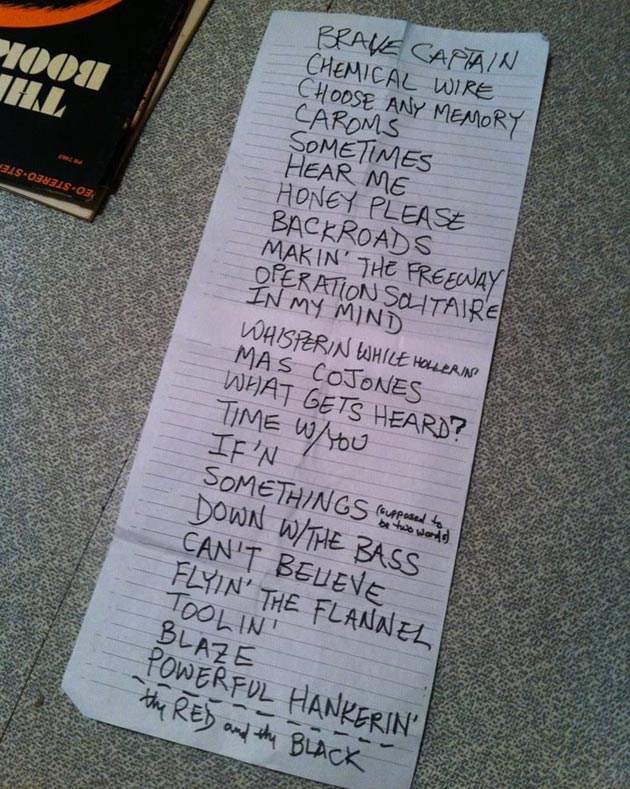 THE
BOOK
PR 7462
STEREO·STEREO
BRAVE CAPTAIN
CHEMICAL WIRE
CHOOSE ANY MEMORY
CAROMS
SOMETIMES
HEAR ME
HONEY PLEASE
BACKROADS
MAKIN' THE FREEWAY
OPERATION SOLITAIRE
IN MY MIND
WHISPERIN WHILE HOLLERIN'
MAS COJONES
WHAT GETS HEARD?
TIME W/YOU
IF'N
SOMETHINGS (supposed to
be two words)
DOWN W/THE BASS
CAN'T BELIEVE
FLYIN' THE FLANNEL
TOOLIN'
BLAZE
POWERFUL HANKERIN'
the RED and the BLACK